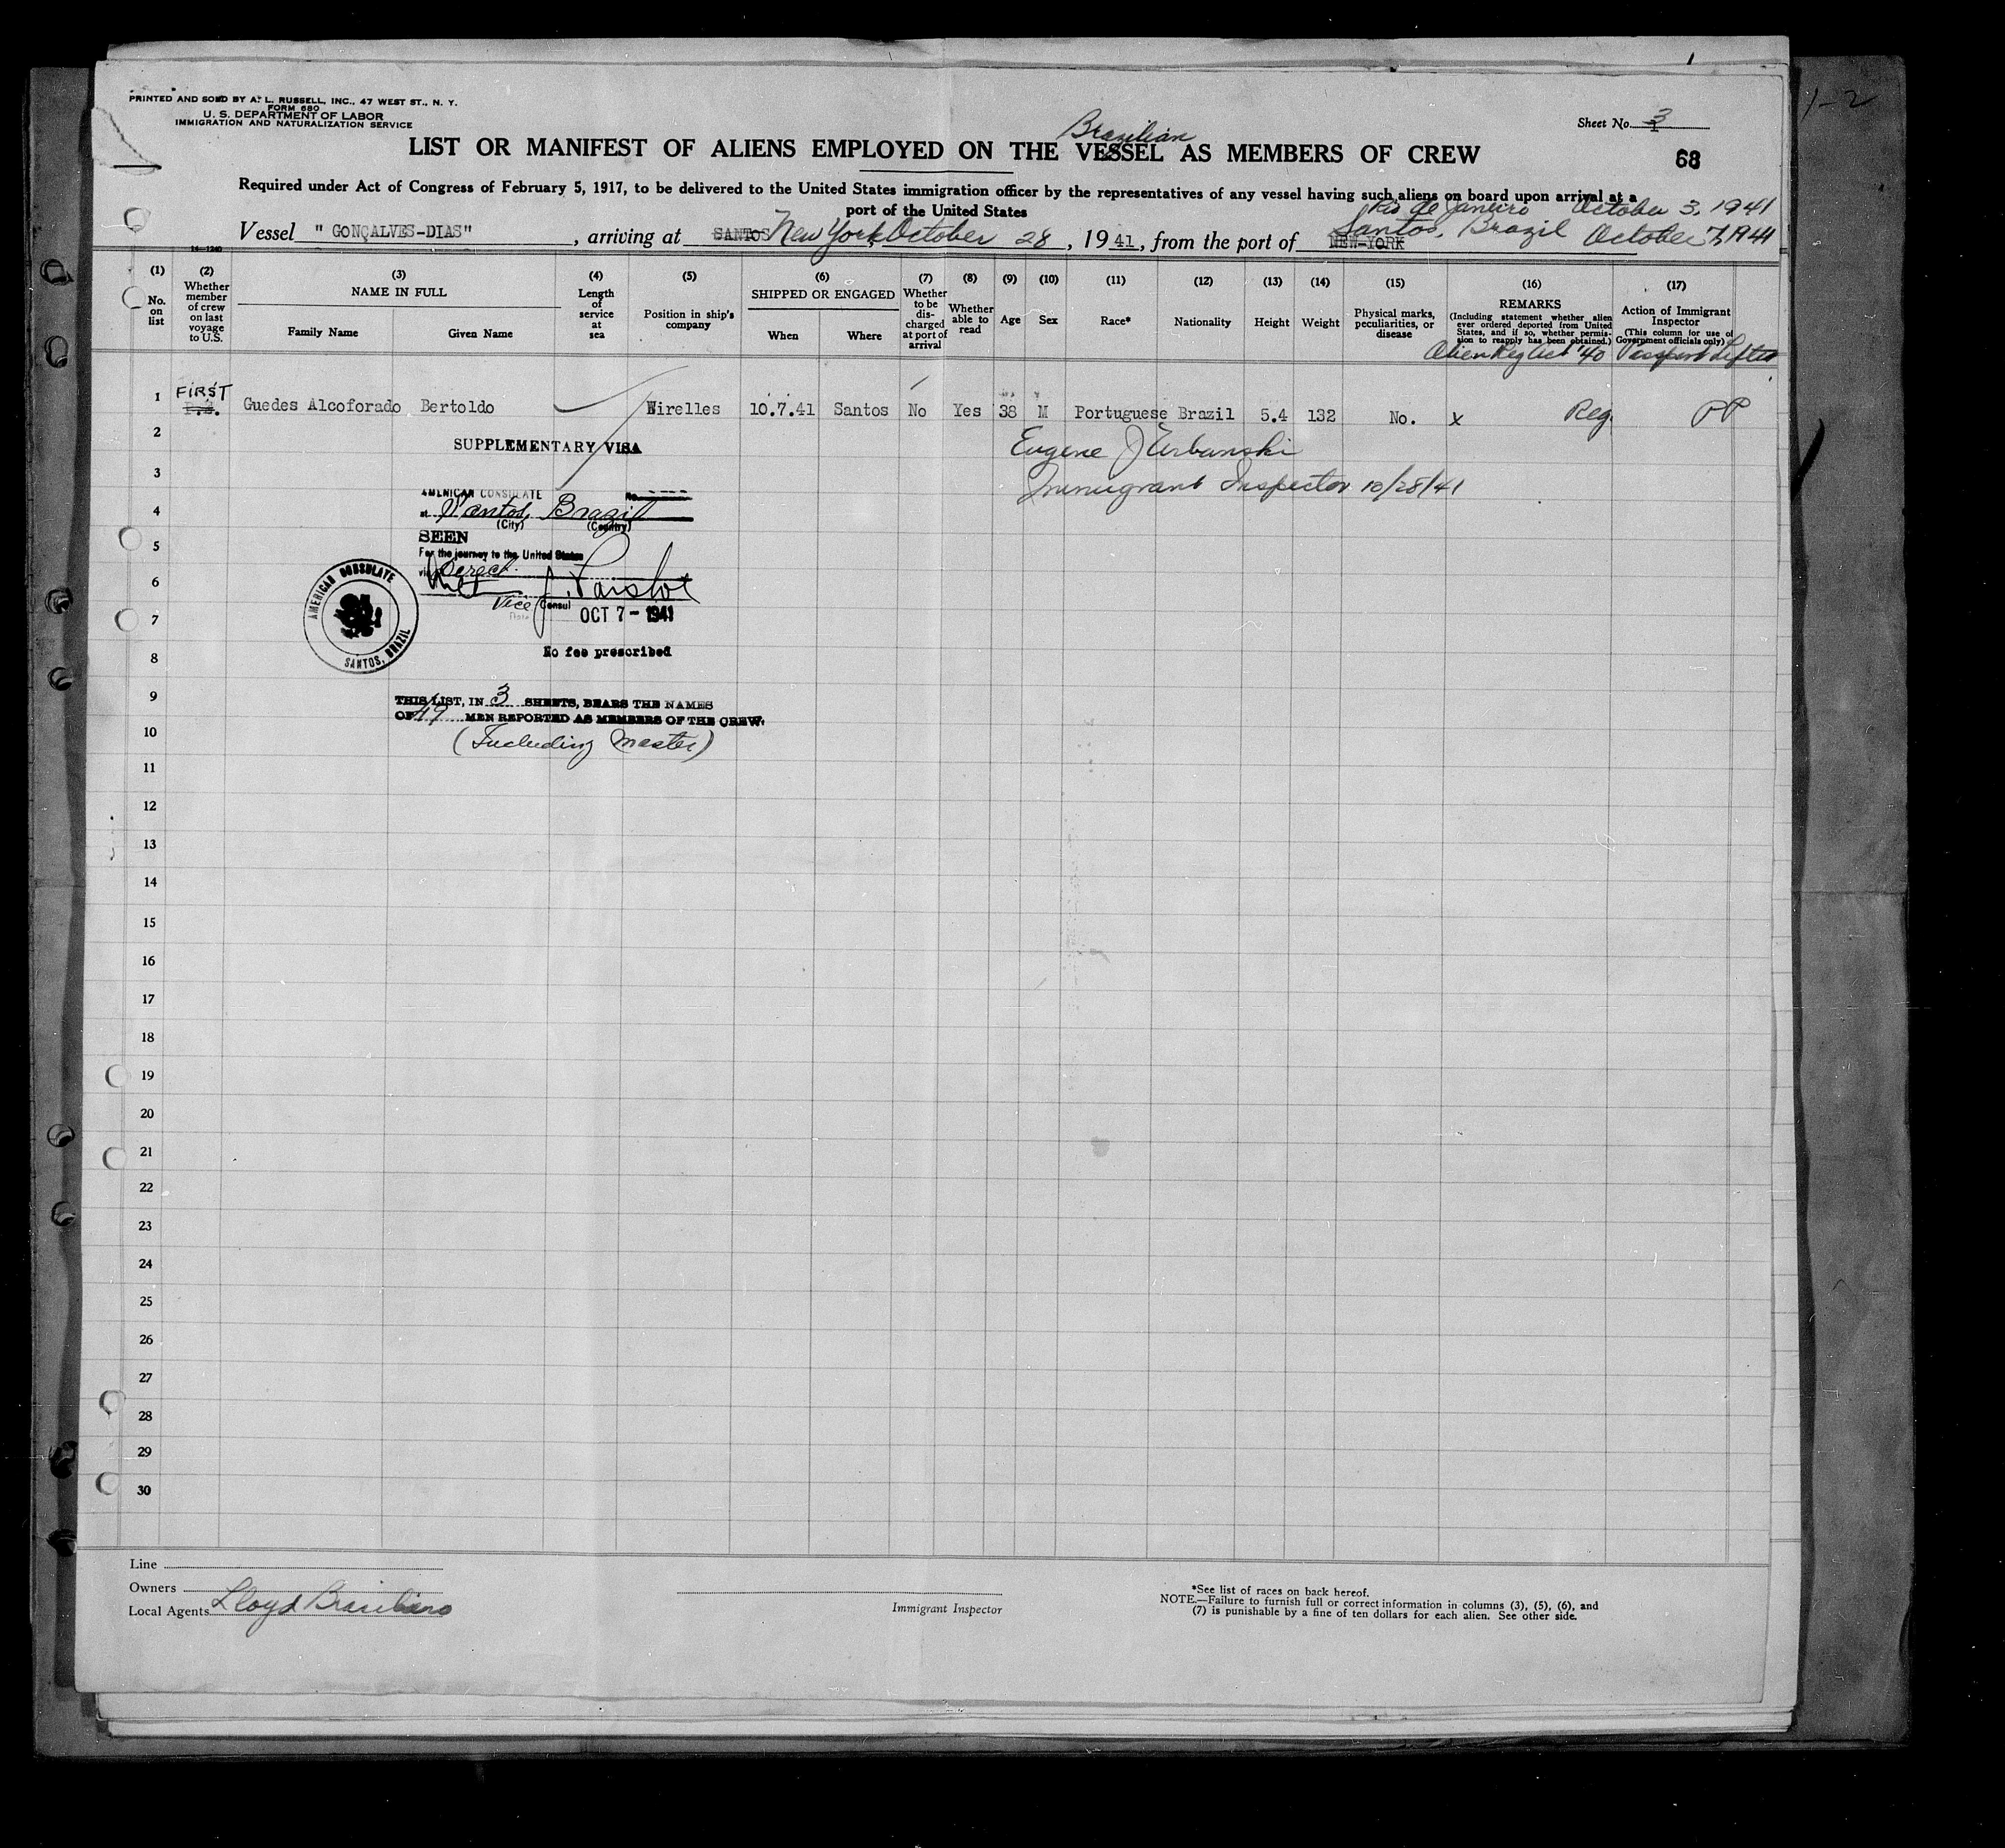 PRINTED AND SOLD BY A. L. RUSSELL, INC., 47 WEST ST., N. Y.
FORM 680
U. S. DEPARTMENT OF LABOR
IMMIGRATION AND NATURALIZATION SERVICE
1-2
Sheet No. 3
Brazilian
LIST OR MANIFEST OF ALIENS EMPLOYED ON THE VESSEL AS MEMBERS OF CREW
68
Required under Act of Congress of February 5, 1917, to be delivered to the United States immigration officer by the representatives of any vessel having such aliens on board upon arrival at a
port of the United States
Rio de Janeiro October 3, 1941
Vessel "GONÇALVES-DIAS", arriving at SANTOS New York October 28, 1941, from the port of NEW-YORK Santos, Brazil October 7, 1941
14-1240
(1) No. on list
(2) Whether member of crew on last voyage to U.S.
(3) NAME IN FULL
Family Name Given Name
(4) Length of service at sea
(5) Position in ship's company
(6) SHIPPED OR ENGAGED
When Where
(7) Whether to be discharged at port of arrival
(8) Whether able to read
(9) Age
(10) Sex
(11) Race*
(12) Nationality
(13) Height
(14) Weight
(15) Physical marks, peculiarities, or disease
(16) REMARKS
(Including statement whether alien ever ordered deported from United States, and if so, whether permission to reapply has been obtained.)
Alien Reg Act '40
(17) Action of Immigrant Inspector
(This column for use of Government officials only)
Passport Lifted
1 FIRST Guedes Alcoforado Bertoldo Wirelles 10.7.41 Santos No Yes 38 M Portuguese Brazil 5.4 132 No. x Reg. PP
2
SUPPLEMENTARY VISA
Eugene J Urbanski
3
Immigrant Inspector 10/28/41
AMERICAN CONSULATE No.
4
at Santos, Brazil
(City) (Country)
5
SEEN
For the journey to the United States
via Direct
6
Vice Consul
7
OCT 7 - 1941
AMERICAN CONSULATE
SANTOS, BRAZIL
8
No fee prescribed
9
THIS LIST, IN 3 SHEETS, BEARS THE NAMES
OF 49 MEN REPORTED AS MEMBERS OF THE CREW.
10
(Including Master)
11
12
13
14
15
16
17
18
19
20
21
22
23
24
25
26
27
28
29
30
Line
Owners
Local Agents Lloyd Brasileiro
Immigrant Inspector
*See list of races on back hereof.
NOTE.—Failure to furnish full or correct information in columns (3), (5), (6), and
(7) is punishable by a fine of ten dollars for each alien. See other side.